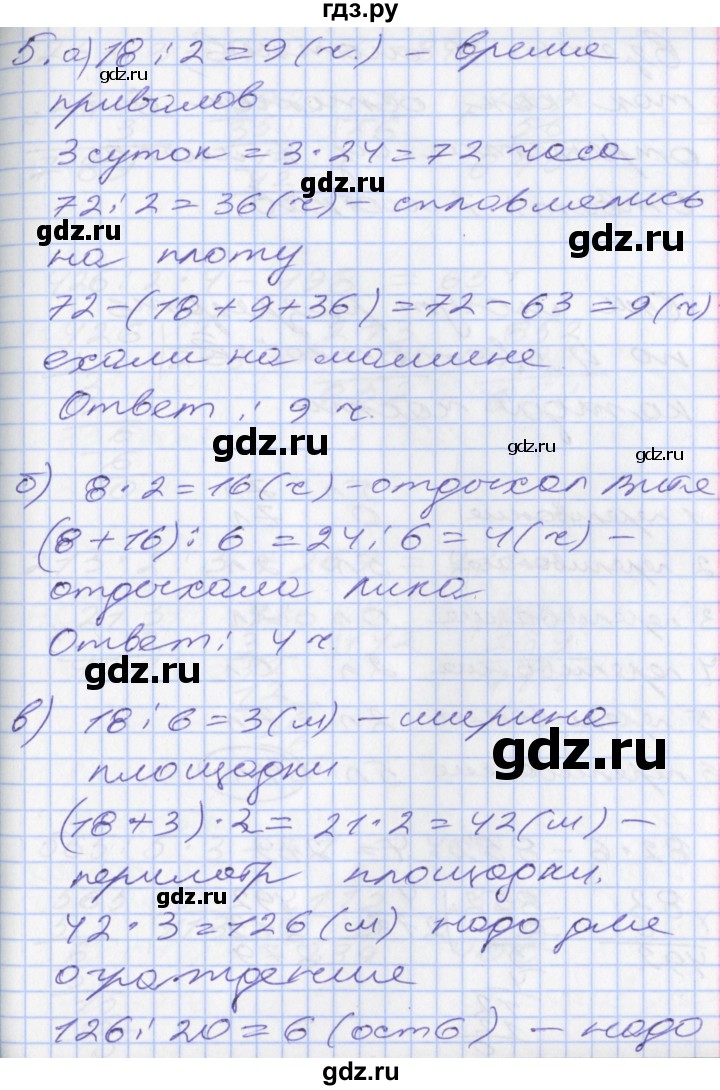 гдз.ру
5. а) 18 : 2 = 9 (ч.) – время
привалов
3 суток = 3 · 24 = 72 часа
gdz.ru
72 : 2 = 36 (ч) – сплавлялись
gdz.ru
gdz.ru
на плоту
72 – (18 + 9 + 36) = 72 – 63 = 9 (ч)
ехали на машине
Ответ : 9 ч.
gdz.ru
gdz.ru
б) 8 · 2 = 16 (ч) – отдыхал Витя
gdz.ru
(8 + 16) : 6 = 24 : 6 = 4 (ч) –
отдыхала
Ответ : 4 ч.
gdz.ru
в) 18 : 6 = 3 (м) – ширина
gdz.ru
площадки
(18 + 3) · 2 = 21 · 2 = 42 (м) –
перилотр площадки.
gdz.ru
42 · 3 = 126 (м) надо для
ограждение
126 : 20 = 6 (ост 6) – надо
gdz.ru